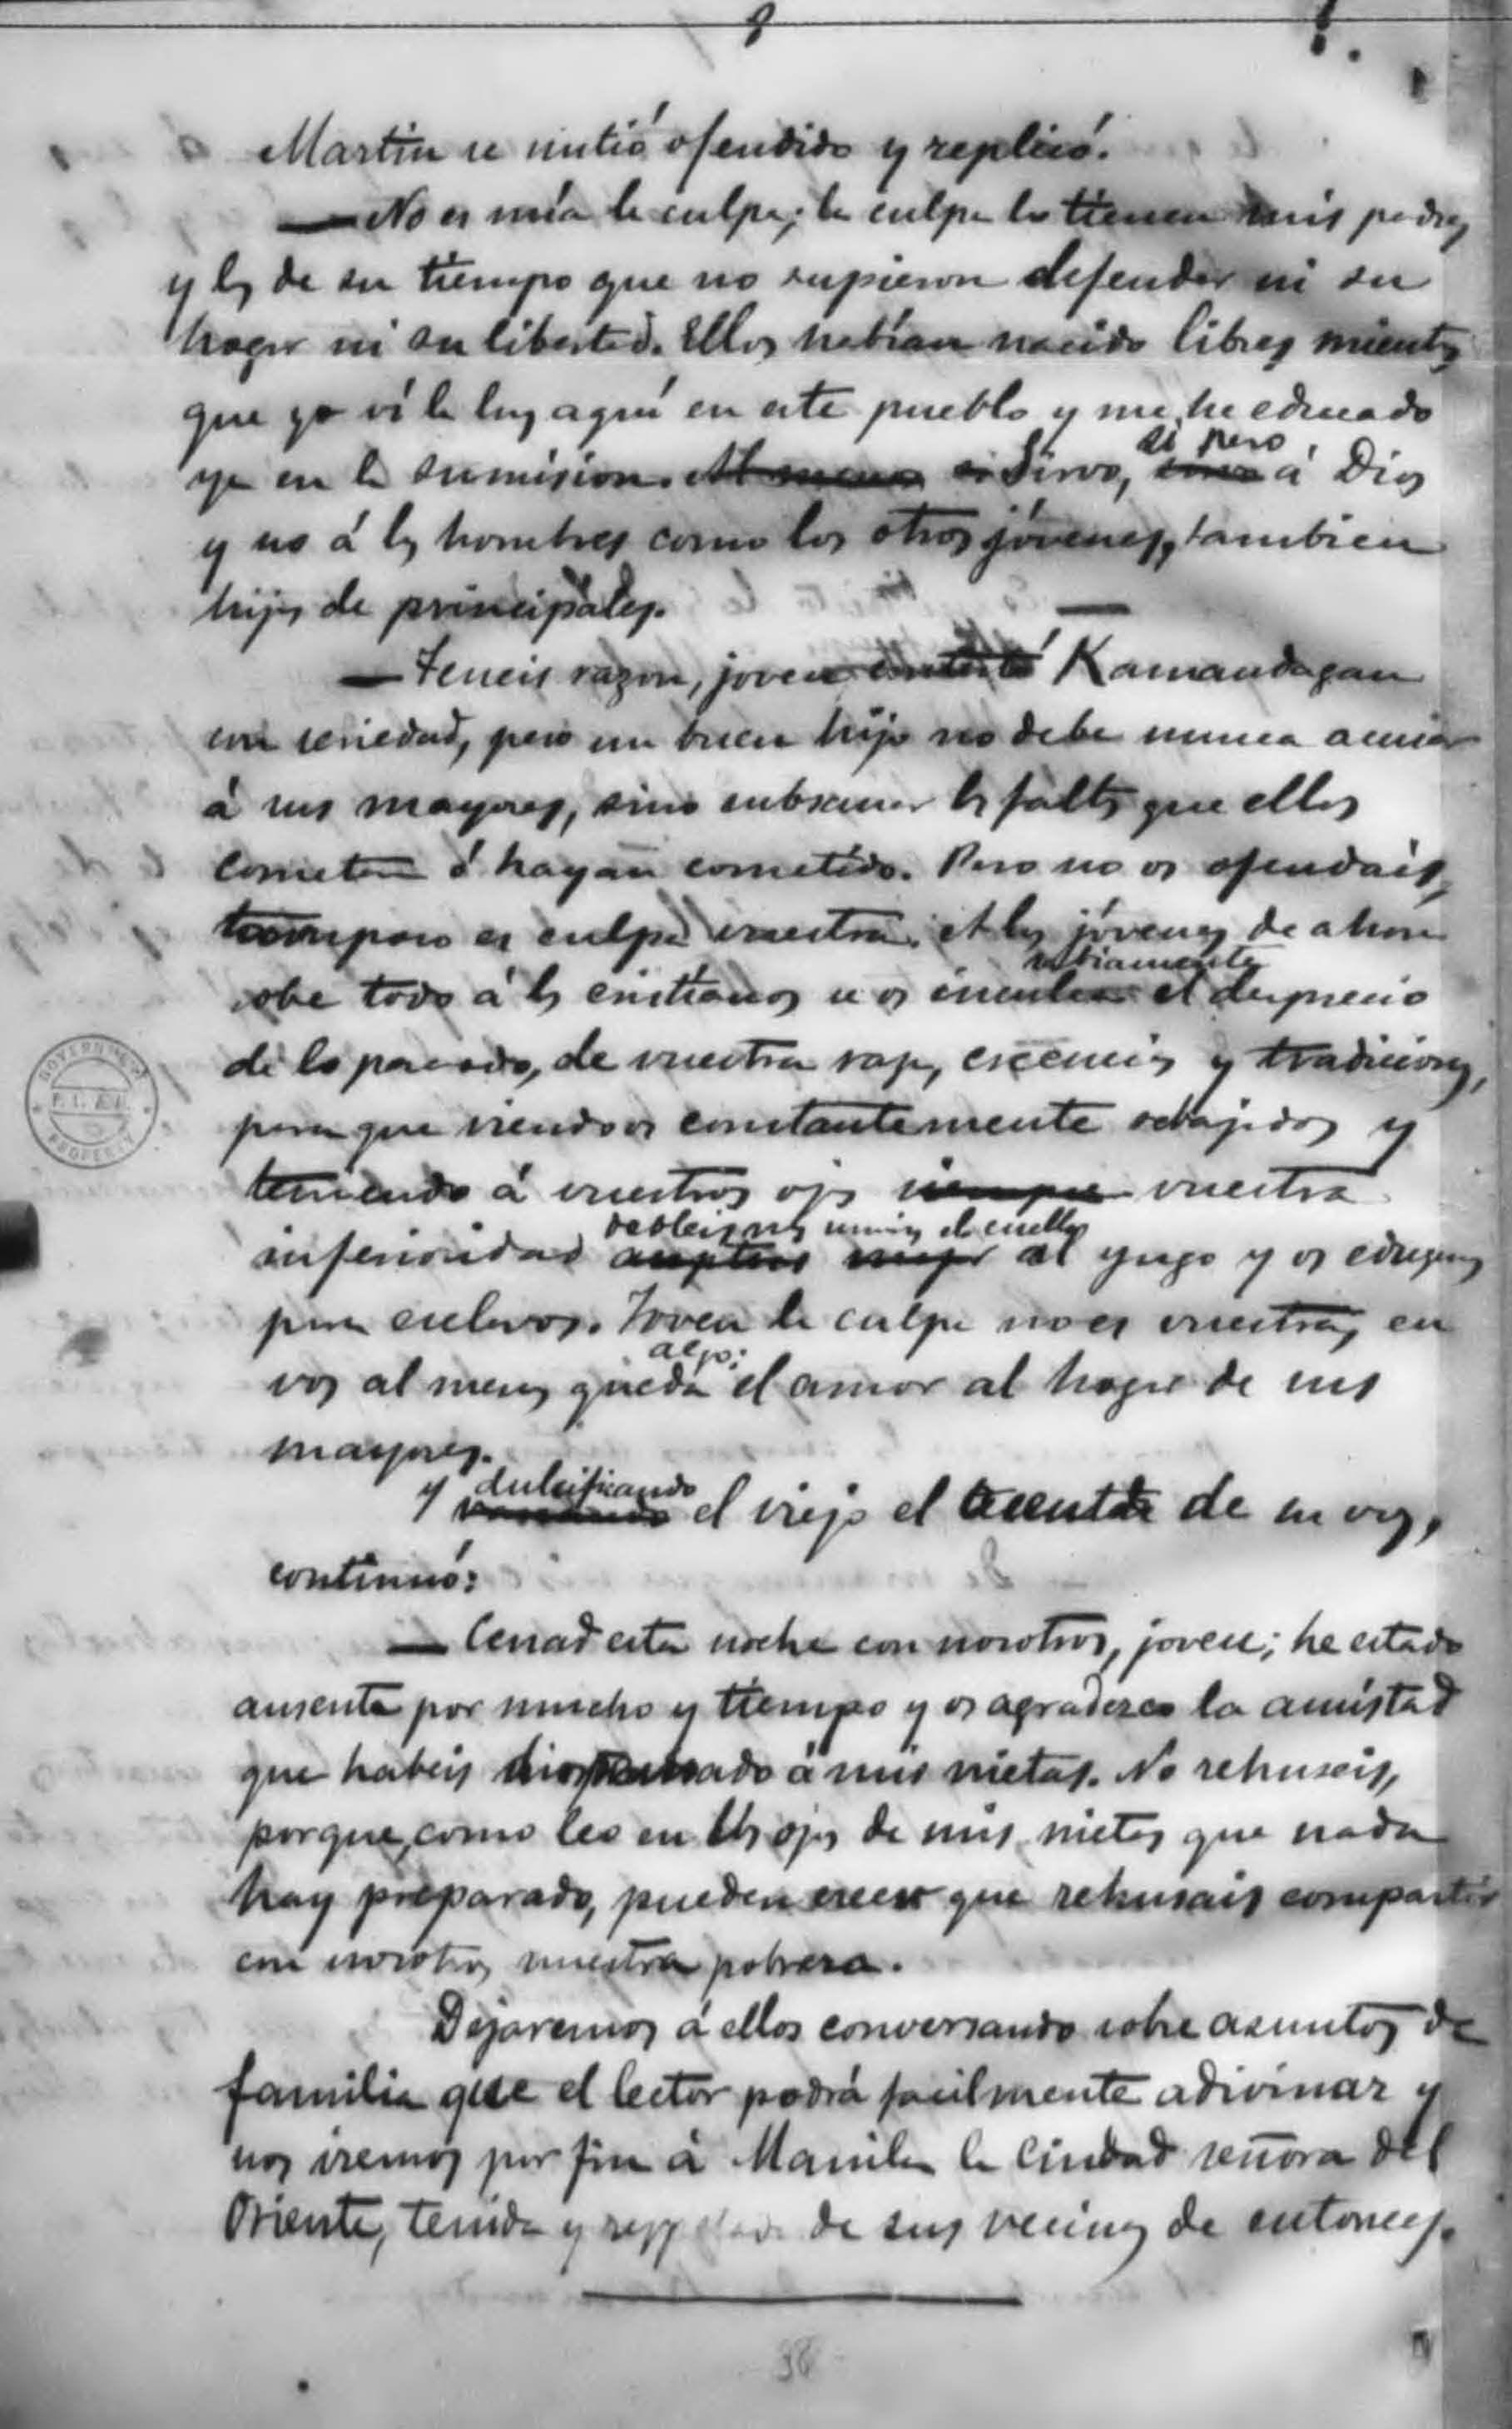 8
Martin se sintió ofendido y replicó:
— No es mía la culpa; la culpa la tienen mis padres
y los de su tiempo que no supieron defender ni su
hogar ni su libertad. Ellos habían nacido libres mientras
que yo ví la luz aquí en este pueblo y me he educado
ya en la sumision. Al menos si Sirvo, sí pero á Dios
y no á los hombres como los otros jóvenes, tambien
hijos de principales.
— Teneis razon, joven contestó Kamandagan
con seriedad, pero un buen hijo no debe nunca acusar
á sus mayores, sino subsanar las faltas que ellos
cometen ó hayan cometido. Pero no os ofendais,
tampoco es culpa vuestra. A los jóvenes de ahora
sobre todo á los cristianos se os inculca sabiamente el desprecio
de lo pasado, de vuestra raza, creencias y tradiciones,
para que viendoos constantemente rebajados y
teniendo á vuestros ojos siempre vuestra
inferioridad dobleis mas el cuello al yugo y os eduquen
para esclavos. Joven la culpa no es vuestra, en
vos al menos queda algo: el amor al hogar de sus
mayores.
Y dulcificando el viejo el acento de su voz,
continuó:
— Cenad esta noche con nosotros, joven; he estado
ausente por mucho y tiempo y os agradezco la amistad
que habeis dispensado á mis nietas. No rehuseis,
porque, como leo en los ojos de mis nietas que nada
hay preparado, pueden creer que rehusais compartir
con nosotros nuestra pobreza.
Dejaremos á ellos conversando sobre asuntos de
familia que el lector podrá facilmente adivinar y
nos iremos por fin á Manila la Ciudad señora del
Oriente, temida y respetada de sus vecinos de entonces.
38
GOVERNMENT
PROPERTY